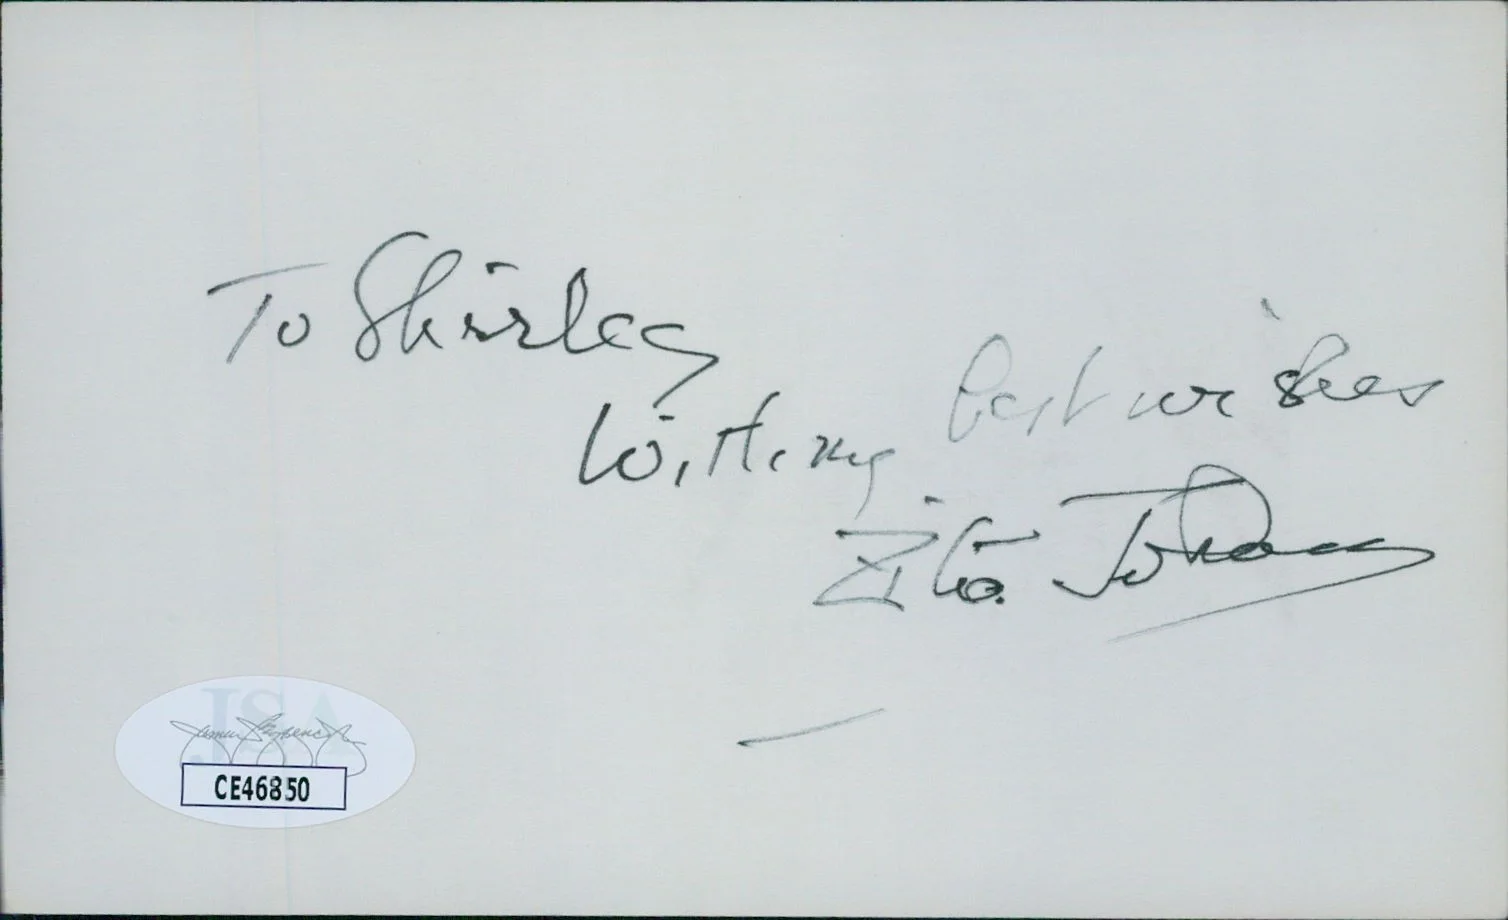 To Shirley
With my best wishes
Zita Johann
JSA
CE46850